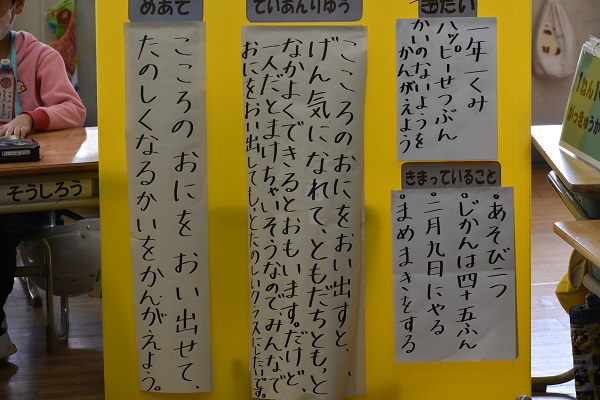 ぎだい
一年一くみ
ハッピーせつぶん
かいのないようを
かんがえよう
きまっていること
・あそび二つ
・じかんは四十五ふん
・二月九日にやる
・まめまきをする
ていあんりゆう
こころのおにをおい出すと、
げん気になれて、ともだちともっと
なかよくできるとおもいます。だけど、
一人だとまけちゃいそうなのでみんなで
おにをおい出して、もっとたのしいクラスにしたいです。
めあて
こころの おにを おい出せて、
たのしくなるかいをかんがえよう。
そうしろう